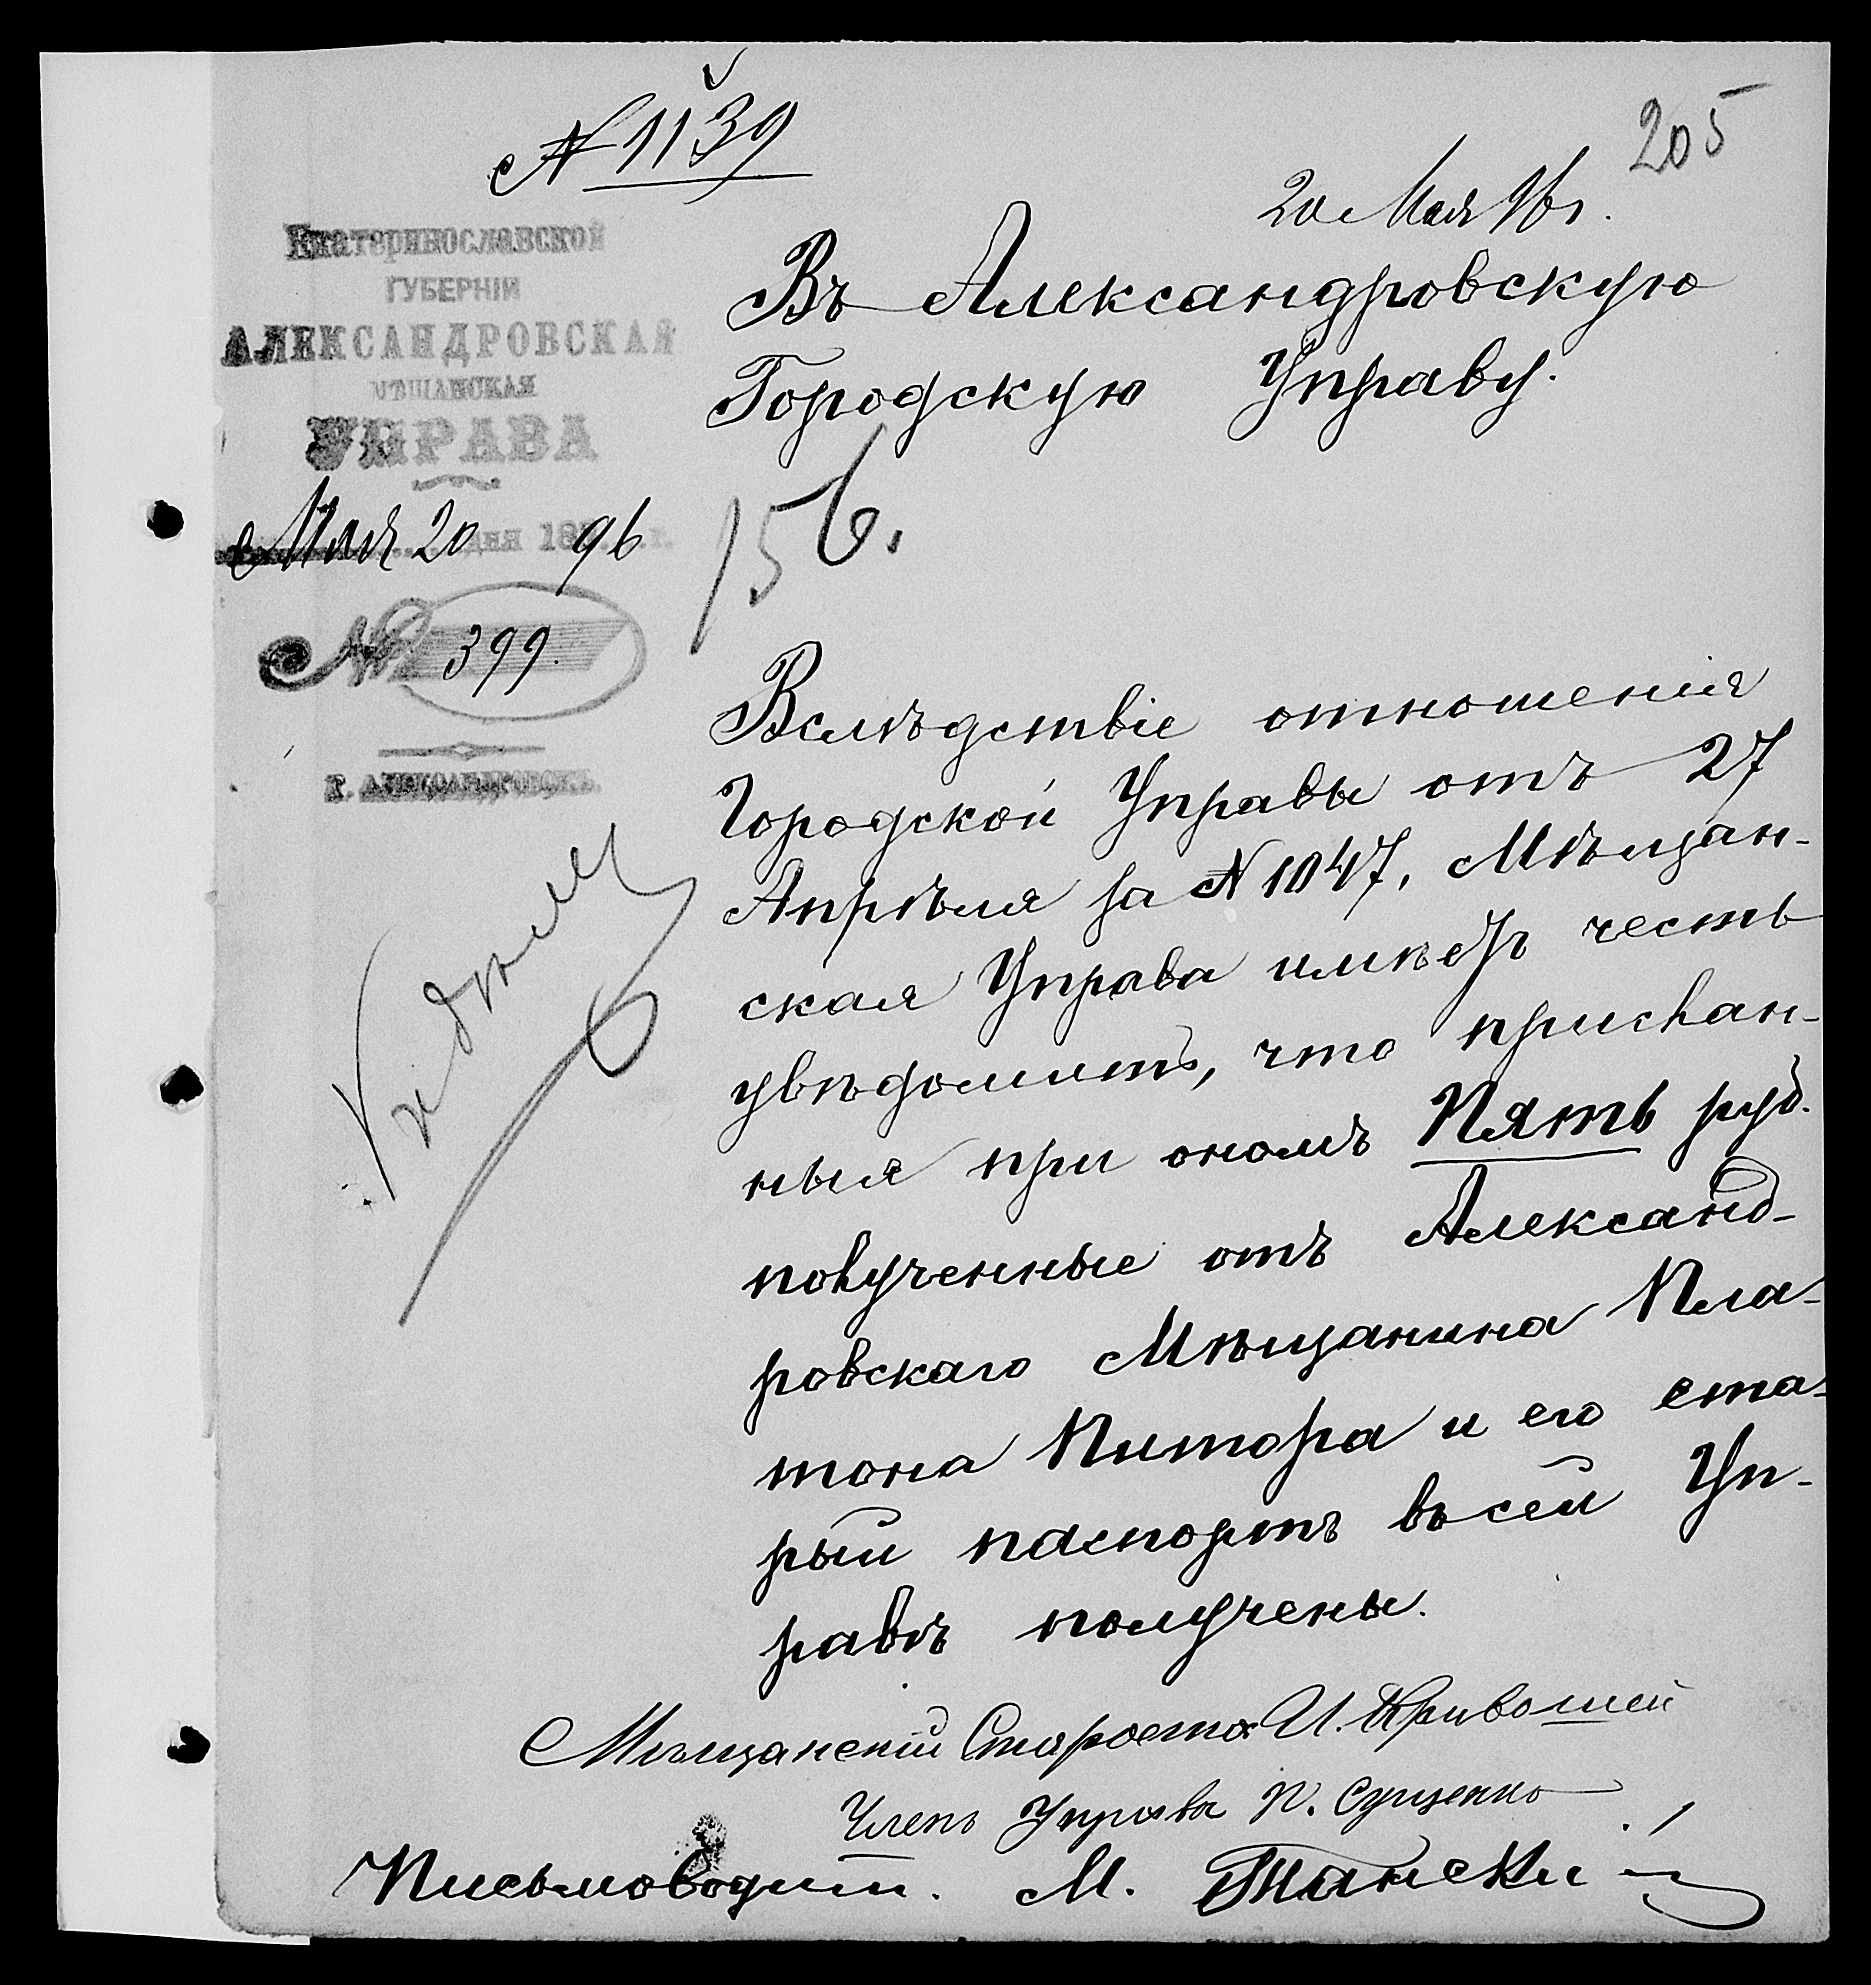 № 1139
205
20 Мая 96 г.
Екатеринославской
ГУБЕРНІИ
АЛЕКСАНДРОВСКАЯ
МѢЩАНСКАЯ
УПРАВА
Мая 20 дня 18 96 г.
№ 399.
Г. АЛЕКСАНДРОВСКЪ.
Въ Александровскую
Городскую Управу.
156.
Вслѣдствіе отношенія
Городской Управы отъ 27
Апрѣля за № 1047, Мѣщан-
ская Управа имѣетъ честь
увѣдомить, что прислан-
ныя при ономъ Пять руб.
полученные отъ Александ-
ровскаго Мѣщанина Пла-
тона Питора и его ста-
рый паспортъ въ сей Уп-
равѣ получены.
Къ дѣлу
Мѣщанскій Староста И. Кривошей
Членъ Управы П. Сущенко
Письмоводит. М. Танскій